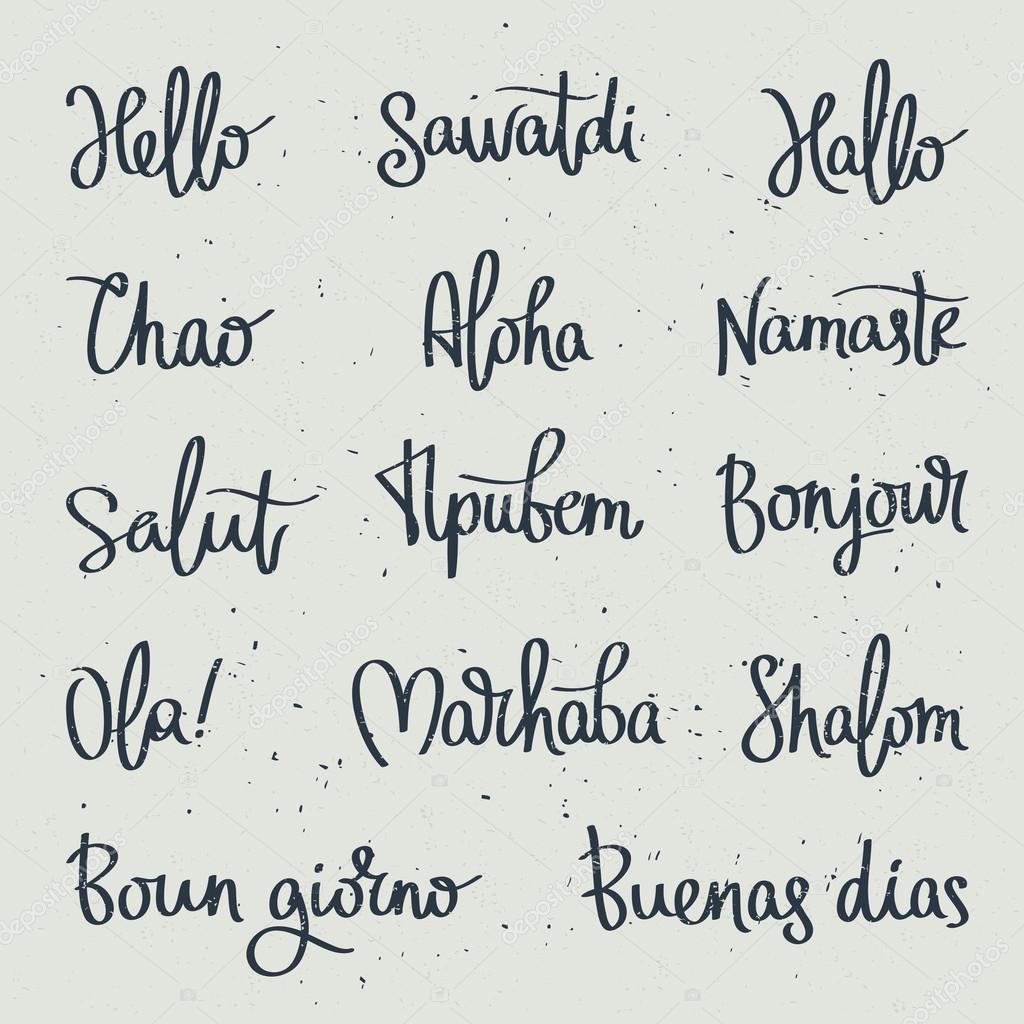 Hello Sawatdi Hallo
Chao Aloha Namaste
Salut Привет Bonjour
Ola! Marhaba Shalom
Boun giorno Buenas dias
depositphotos